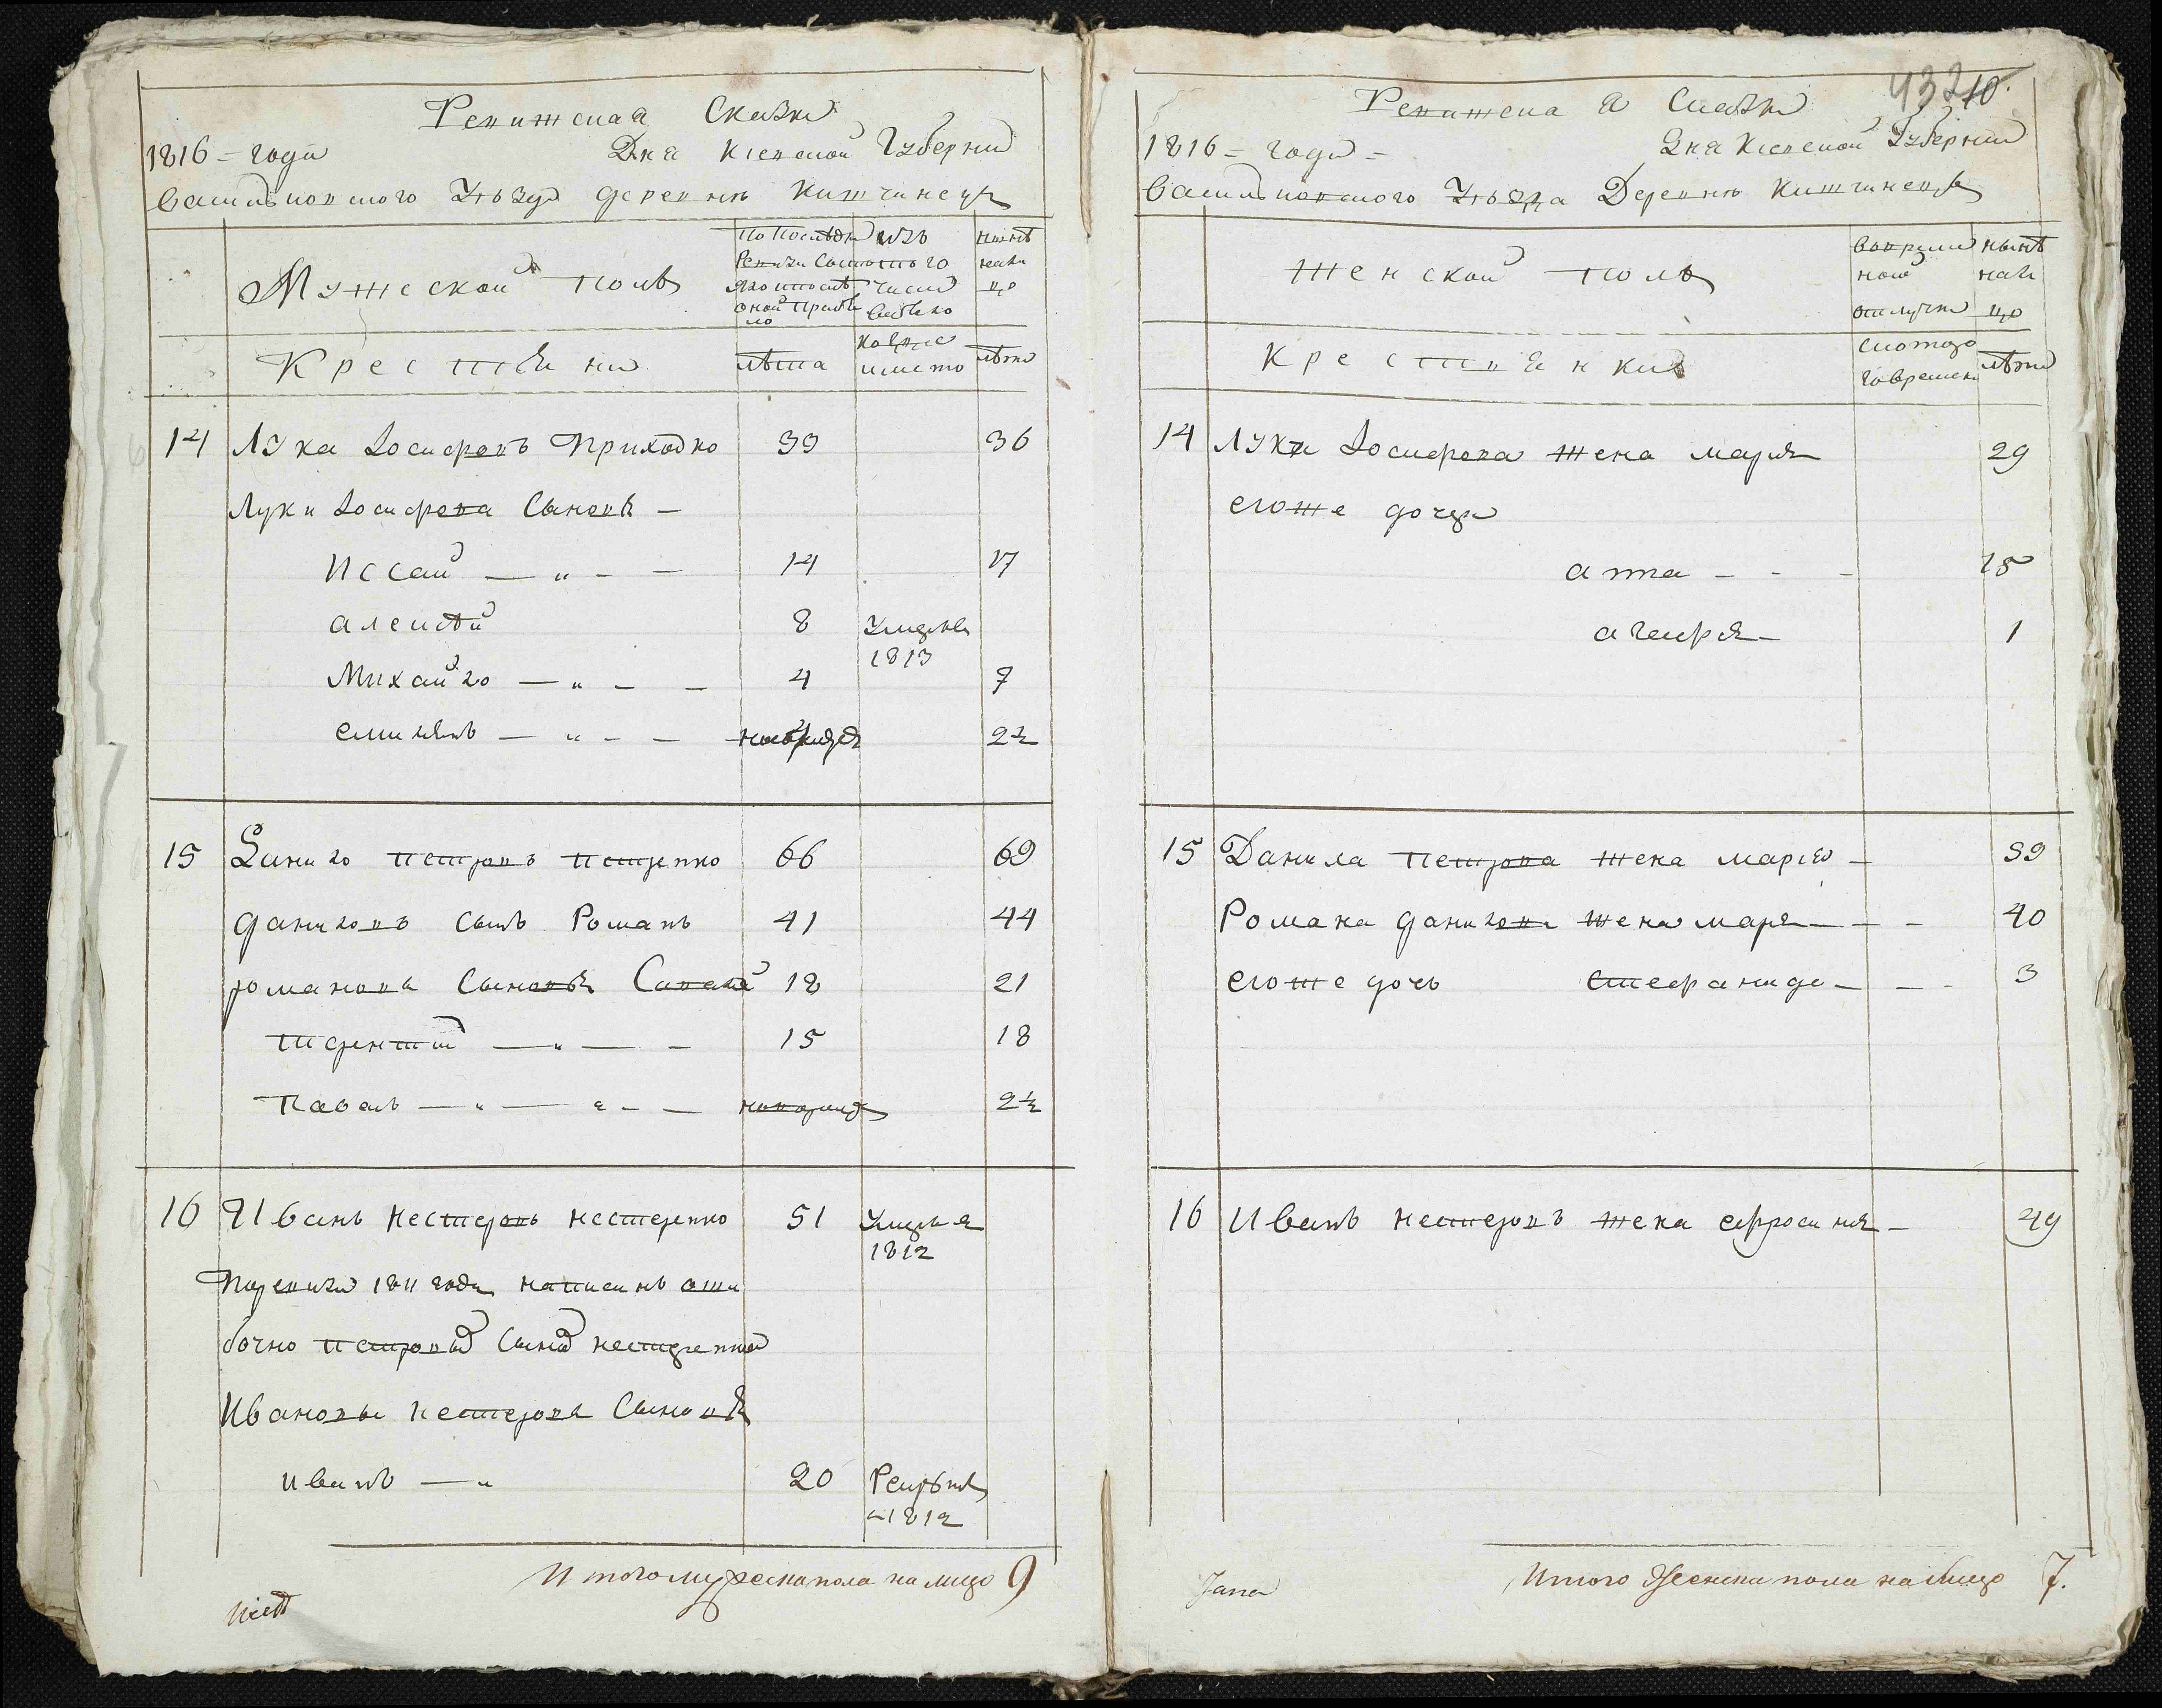 Ревижская Сказка
1816 = года Дня Киевской Губернии
Васильковского Уѣзда деревнѣ Китчинецъ
Мужеской полъ
По последн Ревизи состояло
изъ того числа выбыло
нынѣ нали цо
Крестьяни
лѣта
когда имено
лѣта
14 Лука Iосифовъ Приходко 33 36
Луки Iосифова Сыновя —
Иссай — „ - — 14 17
алексѣй 8 Умерлъ
1813
Михайло — „ — — 4 7
емилянъ — „ - — новорожде 2½
15 Данило петровъ петренко 66 69
даниловъ сынъ Романъ 41 44
романова Сыновья Савасте 18 21
терентий — „ — — 15 18
павелъ — „ — „ - — новорожд 2½
16 Иванъ нестеровъ нестеренко 51 Умерлъ
1812
По ревизи 1811 года написанъ оши
бочно петровъ сынъ нестеренко
Ивановы нестерова Сыновя
иванъ — „ 20 Рекрутъ
1812
Итого мужеска пола на лицо 9
432
10.
Ревижска я Сказка
1816 = года = Дня Киевской Губернии
Васильковского Уѣзда Деревнѣ Китчинецъ
женской полъ
во времен ной отлучки
нынѣ нали цо
Крестьянки
с которо го времен
лѣта
14 Луки Iосифова жена мария 29
егоже дочери
анна — - — 15
агафя — 1
15 Данила петрова жена мария — 59
Романа данилова жена маря — — — 40
егоже дочь стефанида — — - 3
16 Иванъ нестеровъ жена ефросиня — 49
Итого Женска пола на лицо 7.